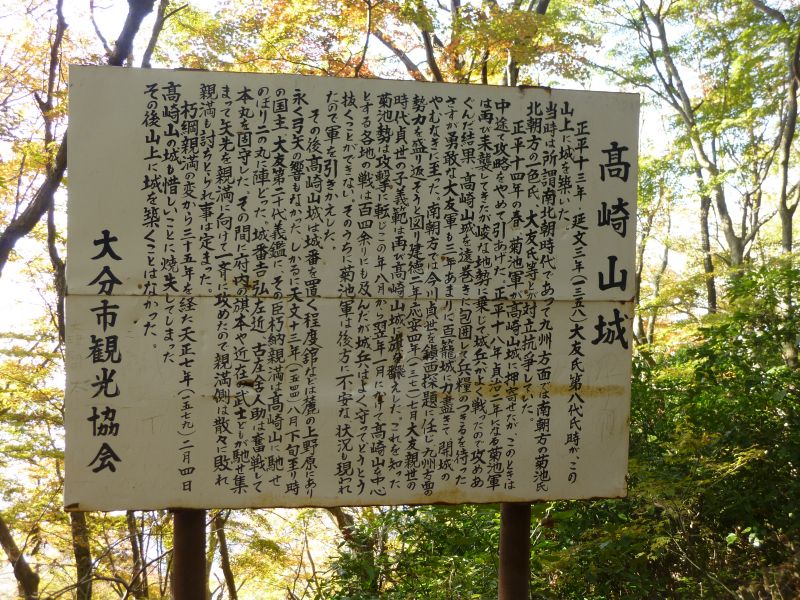 高崎山城
正平十三年 延文三年(一三五八)大友氏第八代氏時が、この
山上に城を築いた。
当時は所謂南北朝時代であって九州方面では南朝方の菊池氏
北朝方の一色氏、大友氏等とが対立抗争していた。
正平十四年の春、菊池軍が高崎山城に押寄せたが、このときは
中途で攻略をやめて引あげた。正平十八年貞治二年になる菊池軍
は再び来襲してきたが峻な地勢に乗じて城兵がよく戦ったので攻めあ
ぐんだ結果、高崎山城を遠巻きに包囲して兵糧のつきるを待った
さすが勇敢な大友軍も三年あまりに亘る籠城に力盡きて開城の
やむなきに至った、南朝方では今川貞世を鎮西探題に任じ九州方面の
勢力を盛り返そうと図り建徳二年応安四年(一三七一)七月大友親世の
時代貞世の子義範は再び高崎山城に旗を翻えした。これを知った
菊池勢は攻撃に転じこの年八月から翌年一月になって高崎山を中心
とする各地の戦は百四余りにも及んだが城兵はよく守ってとうとう
抜くことができない、そのうちに菊池軍は後方に不安な状況も現われ
たので軍を引きかえした。
その後高崎山城は城番を置く程度で館などは麓の上野原にあり
永く弓矢の響もなかった。しかるに天文十三年(一五四四)八月下旬至り時
の国主、大友第二十代義鑑に、その臣朽納親満は高崎山に馳せ
のぼり二の丸に陣とった、城番吉弘左近、古庄舎人助は奮戦して
本丸を固守した。その間に府内の旗本や近在の武士とが馳せ集
まって矢先を親満に向けて一斉に攻めたので親満側は散々に敗れ
親満も討ちとられ事は定まった。
朽綱親満の変から三十五年を経た天正七年(一五七九)二月四日
高崎山の城も惜しいことに焼失してしまった。
その後山上に城を築くことはなかった。
大分市観光協会